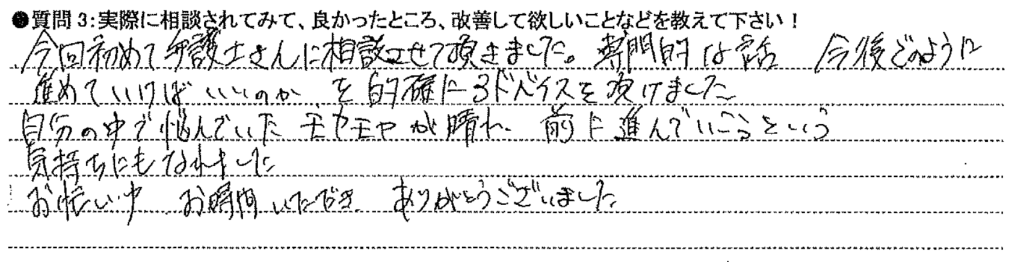 ●質問3:実際に相談されてみて、良かったところ、改善して欲しいことなどを教えて下さい!
今回初めて弁護士さんに相談させて頂きました。専門的な話 今後どのように
進めていけばいいのか を的確にアドバイスを頂けました
自分の中で悩んでいた モヤモヤが晴れ、前に進んでいこうという
気持ちにもなれました
お忙い中 お時間いただき ありがとうございました